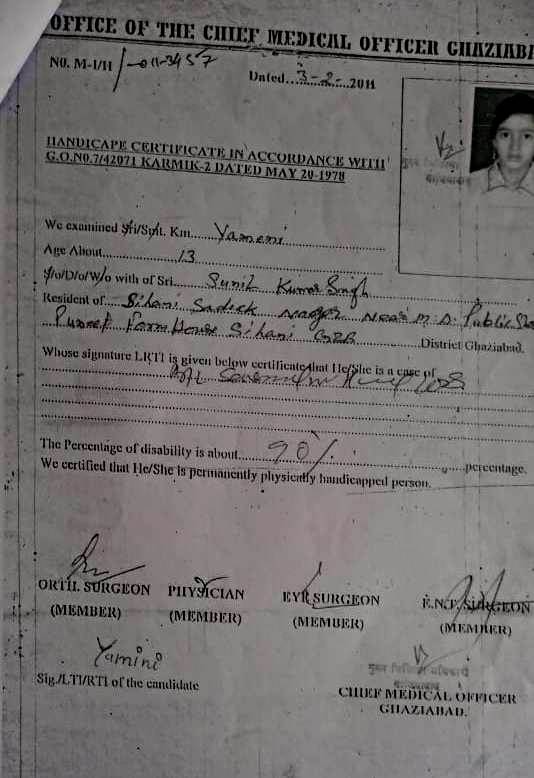 OFFICE OF THE CHIEF MEDICAL OFFICER GHAZIABA
NO. M-I/H/-011-3457
Dated...3-2-..2011
HANDICAPE CERTIFICATE IN ACCORDANCE WITH
G.O.NO.7/42071 KARMIK-2 DATED MAY 20-1978
We examined Sri/Smt. Km....Yameni
Age About.....13
S/o/D/o/W/o with of Sri....Sunil Kumar Singh
Resident of...Sihani Sadick Nagar Near M.S. Public
Farm House Sihani GZB District Ghaziabad.
Whose signature LRTI is given below certificate that He/She is a case of
B/L Severe
The Percentage of disability is about....90%......percentage.
We certified that He/She is permanently physically handicapped person.
ORTH. SURGEON PHYSICIAN EYE SURGEON E.N.T. SURGEON
(MEMBER) (MEMBER) (MEMBER) (MEMBER)
Yamini
Sig./LTI/RTI of the candidate
मुख्य चिकित्सा अधिकारी
गाजियाबाद
CHIEF MEDICAL OFFICER
GHAZIABAD.